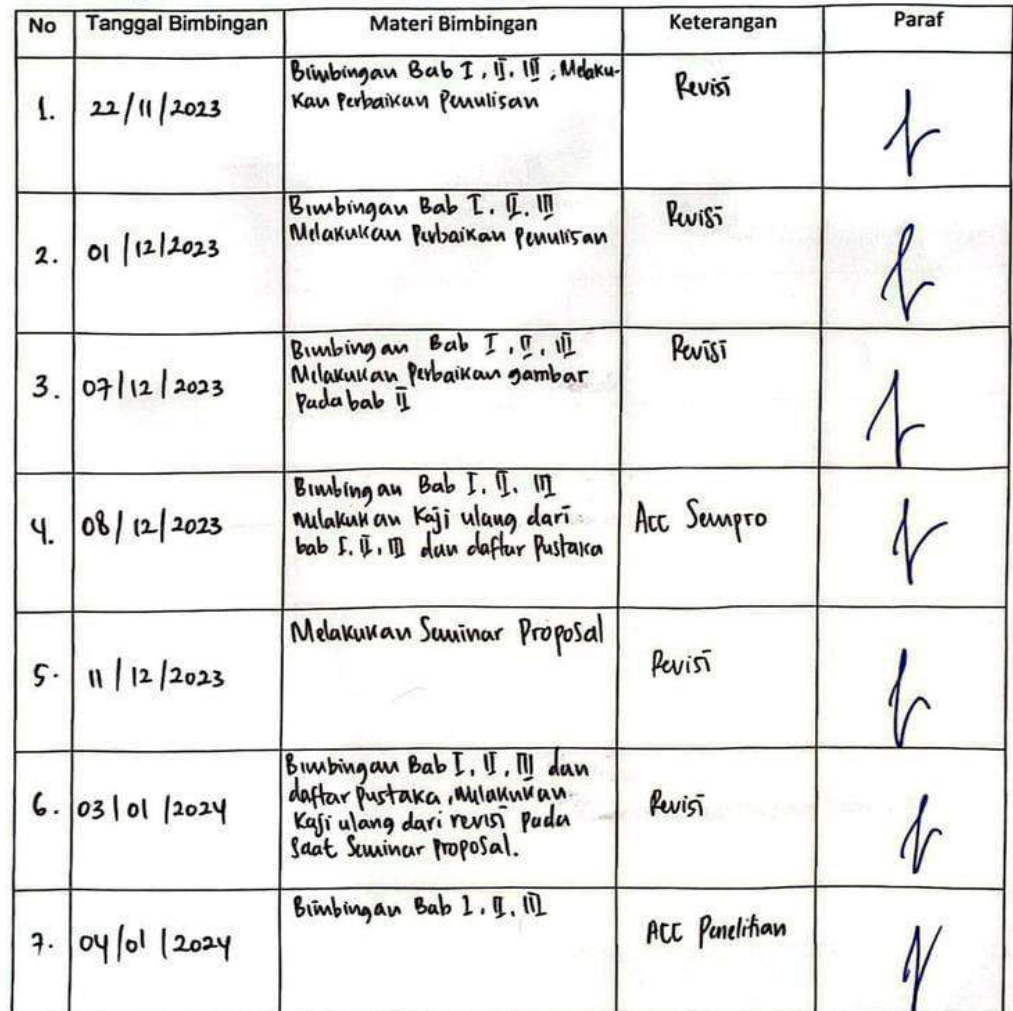 No Tanggal Bimbingan Materi Bimbingan Keterangan Paraf
1. 22/11/2023 Bimbingan Bab I, II, III, Melaku-
kan Perbaikan Penulisan Revisi
2. 01/12/2023 Bimbingan Bab I, II, III
Melakukan Perbaikan Penulisan Revisi
3. 07/12/2023 Bimbingan Bab I, II, III
Melakukan Perbaikan gambar
Pada bab II Revisi
4. 08/12/2023 Bimbingan Bab I, II, III
Melakukan Kaji ulang dari
bab I, II, III dan daftar Pustaka Acc Sempro
5. 11/12/2023 Melakukan Seminar Proposal Revisi
6. 03/01/2024 Bimbingan Bab I, II, III dan
daftar Pustaka, Melakukan
Kaji ulang dari revisi Pada
Saat Seminar Proposal. Revisi
7. 04/01/2024 Bimbingan Bab I, II, III ACC Penelitian